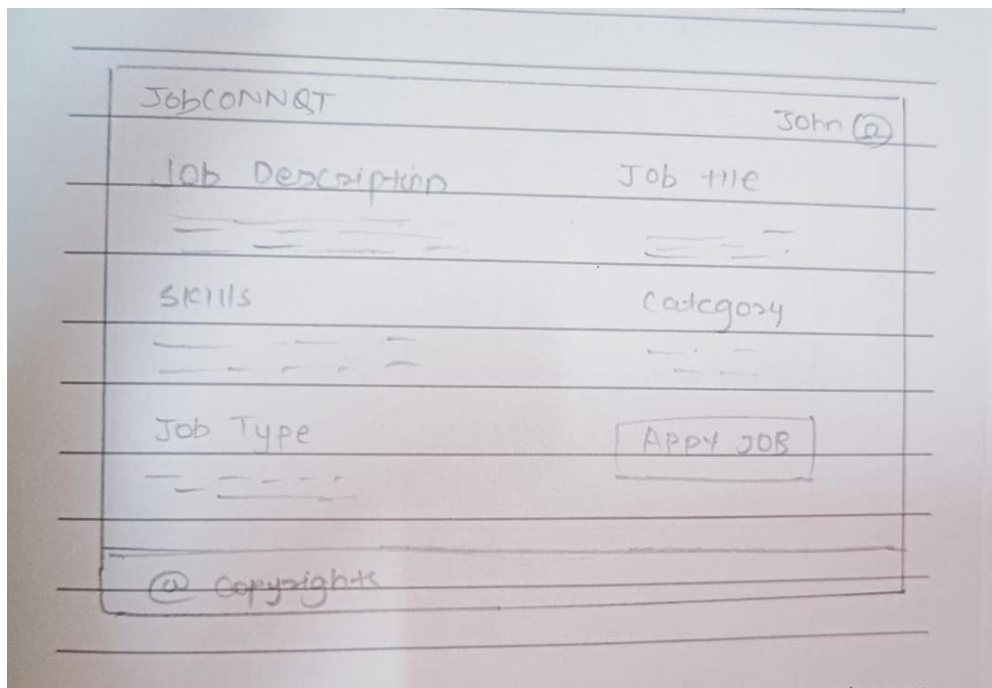 JobCONNQT
John
Job Description
Job title
Skills
Category
Job Type
APPY JOB
@ copyrights